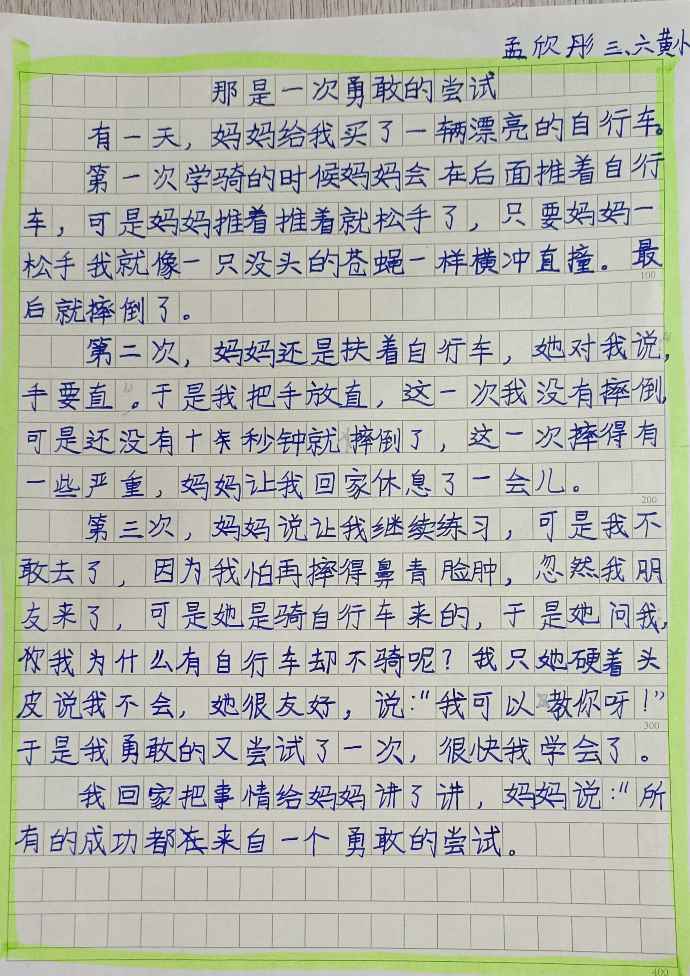 孟欣彤 三、六黄小
那是一次勇敢的尝试
有一天，妈妈给我买了一辆漂亮的自行车。
第一次学骑的时候妈妈会在后面推着自行
车，可是妈妈推着推着就松手了，只要妈妈一
松手我就像一只没头的苍蝇一样横冲直撞。最
100
后就摔倒了。
第二次，妈妈还是扶着自行车，她对我说，
手要直。于是我把手放直，这一次我没有摔倒，
可是还没有十来秒钟就摔倒了，这一次摔得有
一些严重，妈妈让我回家休息了一会儿。
200
第三次，妈妈说让我继续练习，可是我不
敢去了，因为我怕再摔得鼻青脸肿，忽然我朋
友来了，可是她是骑自行车来的，于是她问我，
你我为什么有自行车却不骑呢？我只她硬着头
皮说我不会，她很友好，说：“我可以教你呀！”
300
于是我勇敢的又尝试了一次，很快我学会了。
我回家把事情给妈妈讲了讲，妈妈说：“所
有的成功都在来自一个勇敢的尝试。
400